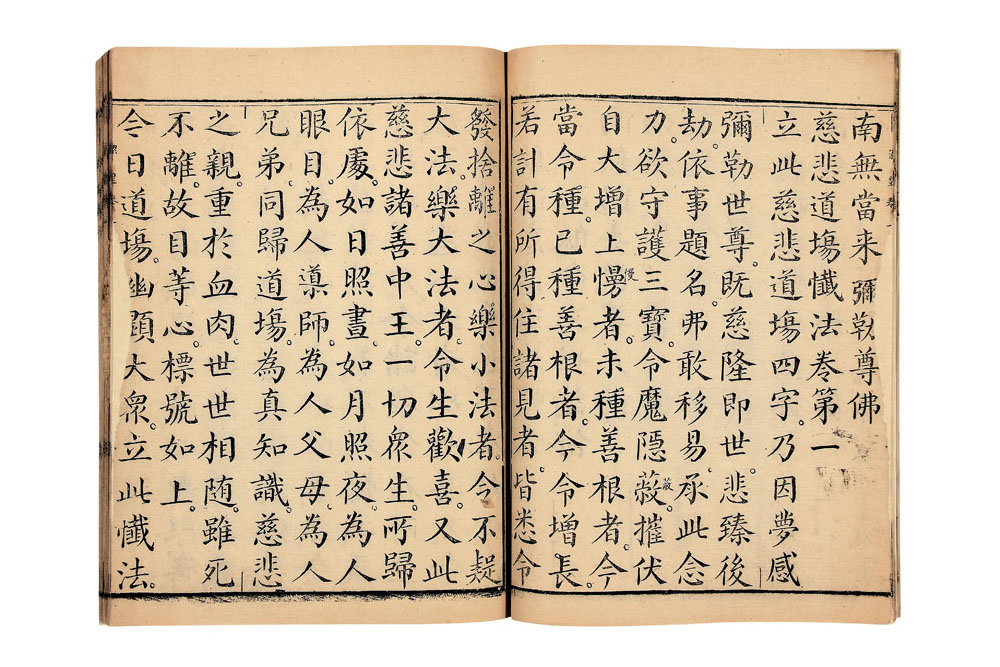 南無當来彌勒尊佛
慈悲道塲懴法卷第一
立此慈悲道塲四字。乃因夢感
彌勒世尊。既慈隆即世。悲臻後
劫。依事題名。弗敢移易。承此念
力。欲守護三寶。令魔隱蔽。摧伏
自大增上慢者。未種善根者。今
當令種。已種善根者。今令增長。
若計有所得。住諸見者。皆悉令
發捨離之心。樂小法者。令不疑
大法。樂大法者。令生歡喜。又此
慈悲諸善中王。一切衆生。所歸
依處。如日照晝。如月照夜。為人
眼目。為人導師。為人父母。為人
兄弟。同歸道塲。為真知識。慈悲
之親。重於血肉。世世相随。雖死
不離。故目等心。標號如上。
今日道塲。幽顯大衆。立此懴法。